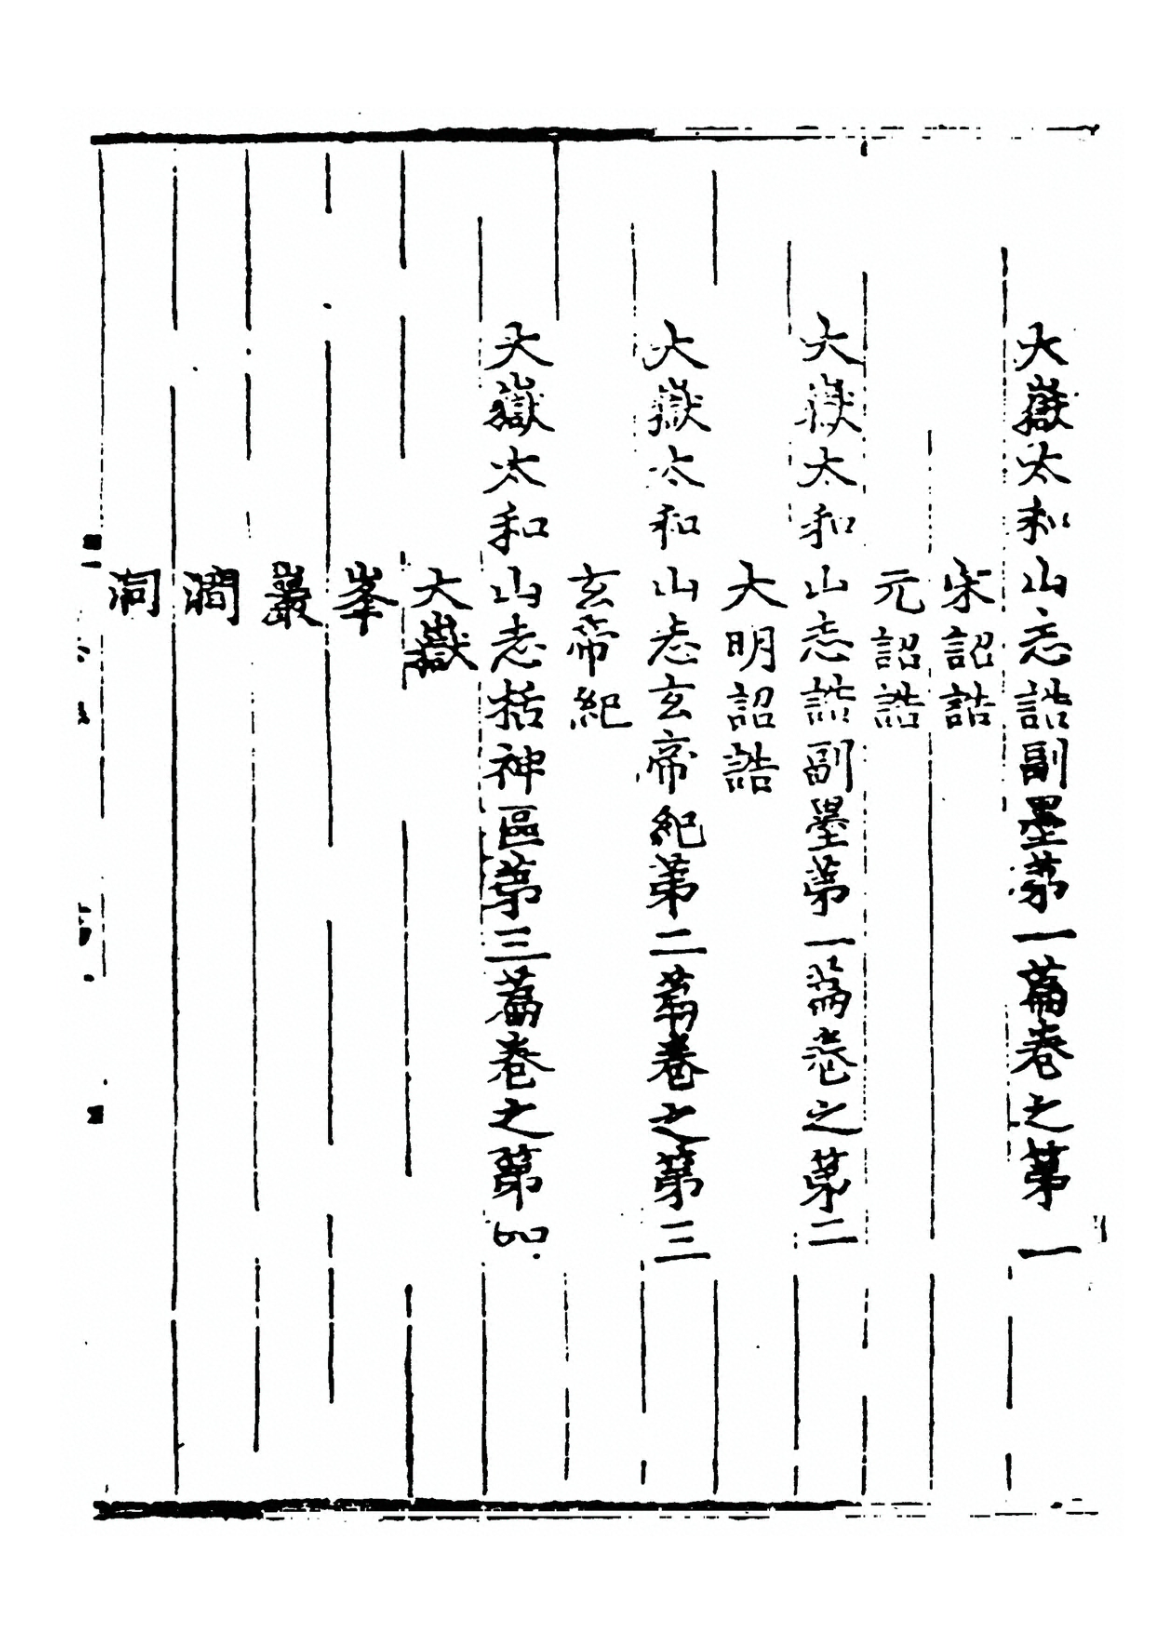 大嶽太和山志誥副墨第一篇卷之第一
宋詔誥
元詔誥
大嶽太和山志誥副墨第一篇卷之第二
大明詔誥
大嶽太和山志玄帝紀第二篇卷之第三
玄帝紀
大嶽太和山志括神區第三篇卷之第四
大嶽
峯
巖
澗
洞